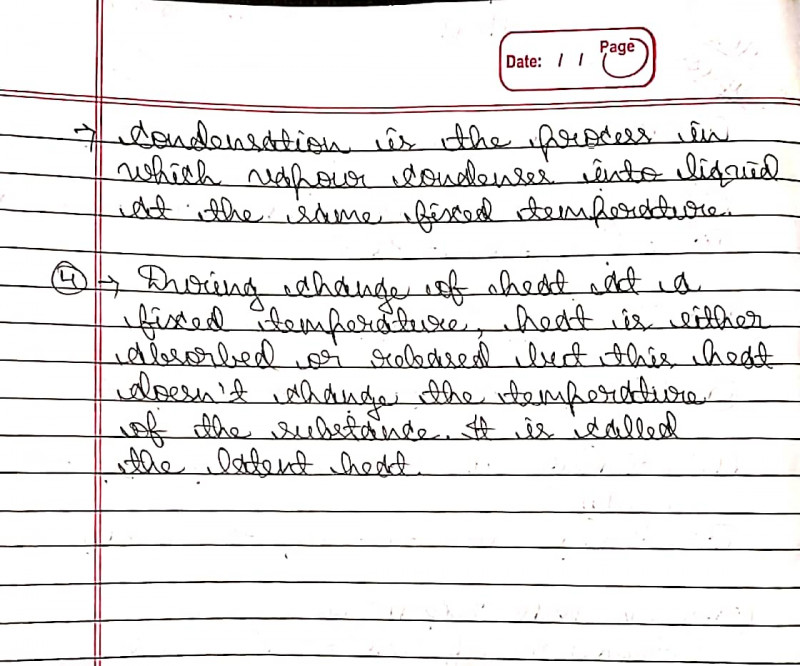 Date: / / Page
→ Condensation is the process in
which vapour condenses into liquid
at the same fixed temperature.
4 → During change of heat at a
fixed temperature, heat is either
absorbed or released but this heat
doesn't change the temperature
of the substance. It is called
the latent heat.